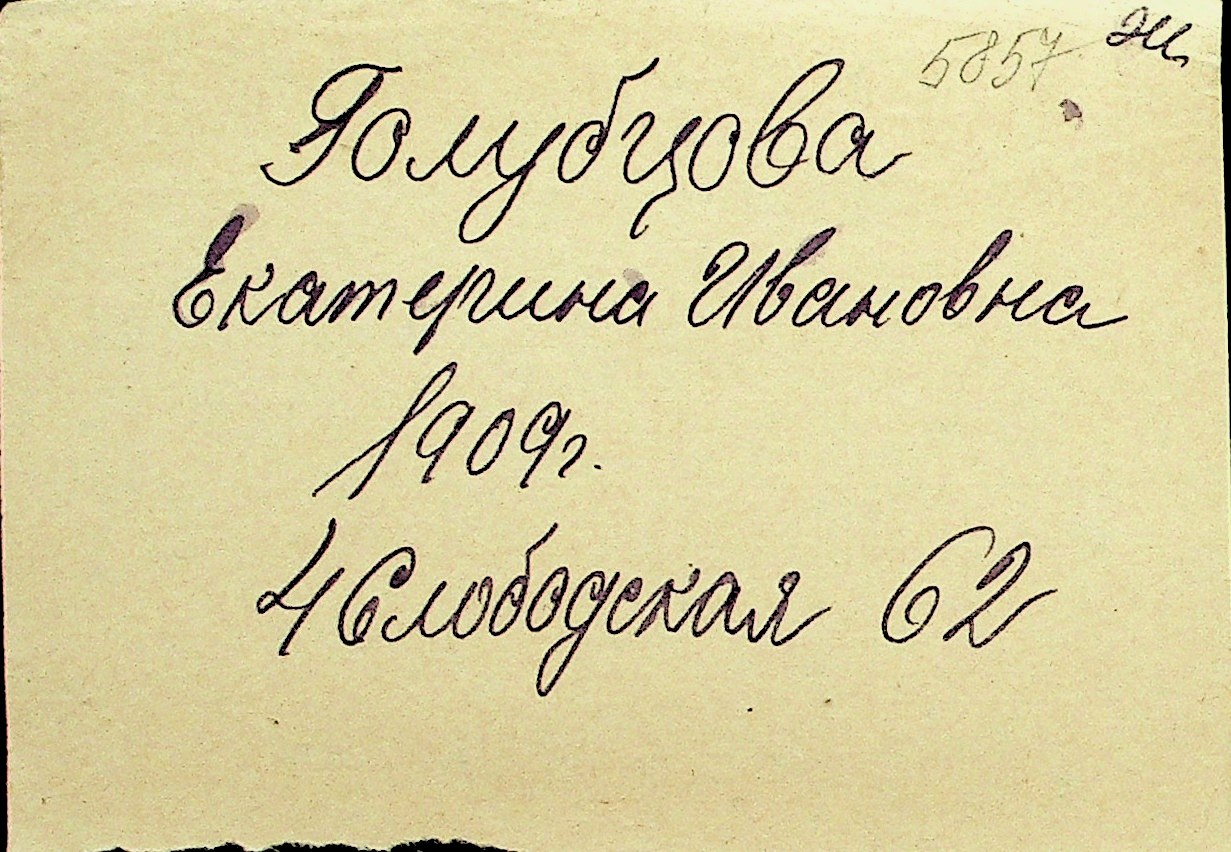 5857
Голубцова
Екатерина Ивановна
1909г.
4 Слободская 62